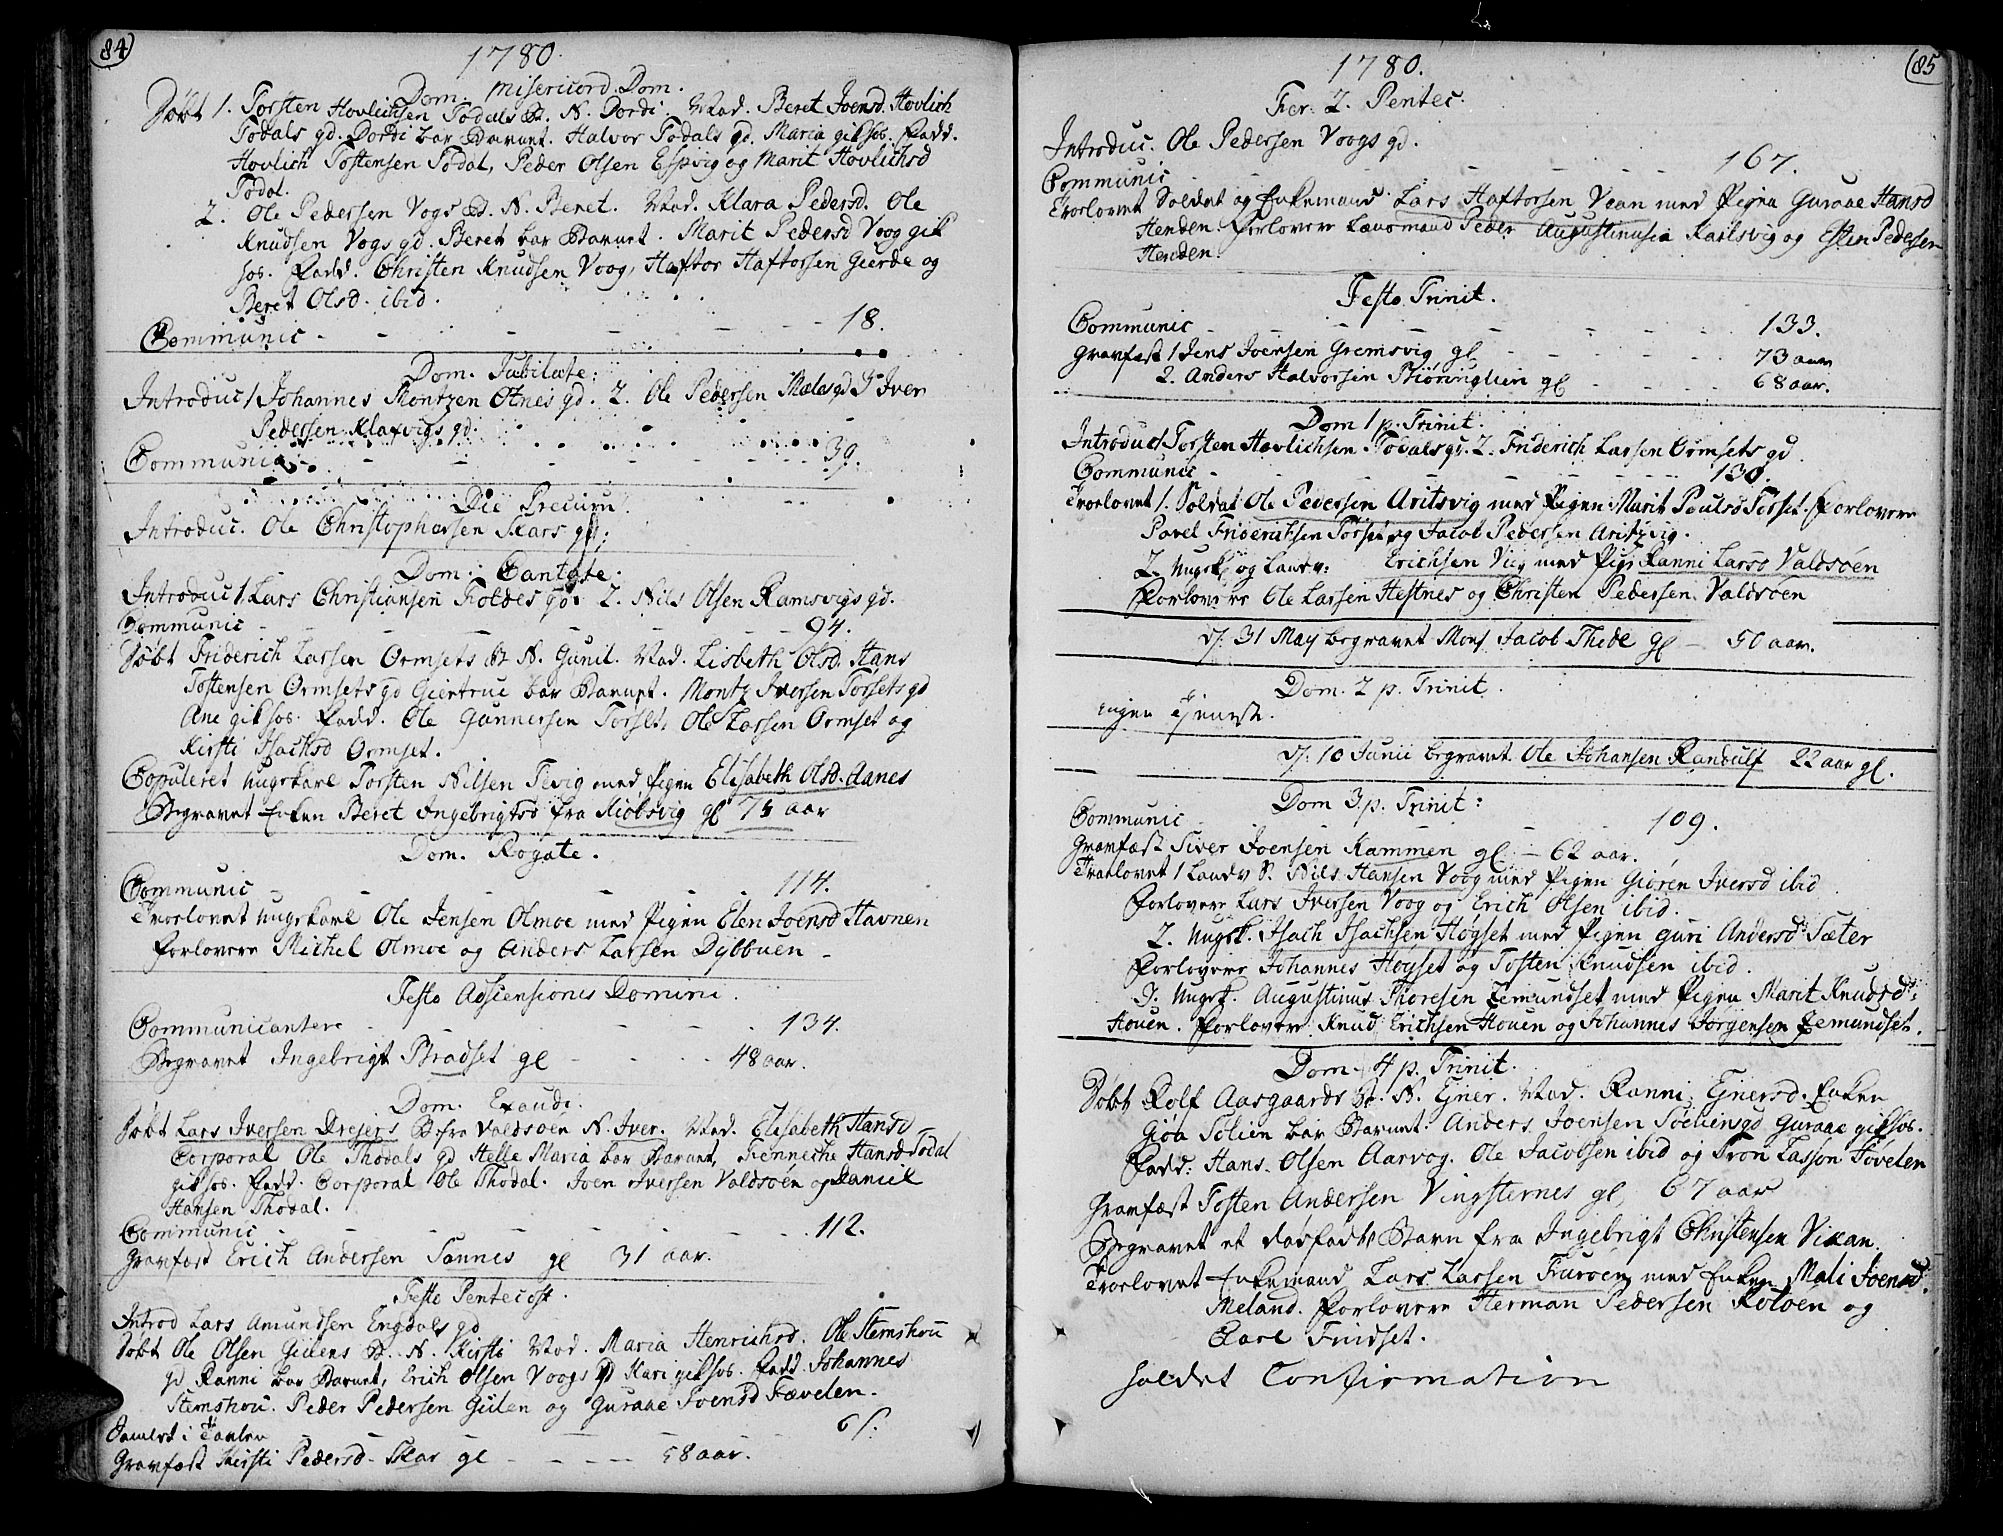 84
1780.
Dom. Misericord. Dom.
Døbt 1. Torsten Hovlichsen Todals B. N. Dordi. Mod. Beret Joensd. Hovlich
Todals gd. Dordi bar Barnet. Halvor Todals gd. Maria gik hos. Fadd.
Hovlich Tostensen Todal, Peder Olsen Espvig og Marit Hovlichsd
Todal.
2. Ole Pedersen Vogs B. N. Beret. Mod. Klara Pedersd. Ole
Knudsen Vogs gd. Beret bar Barnet. Marit Pedersd Voog gik
hos. Fadd. Christen Knudsen Voog, Haftor Haftorsen Gierde og
Beret Olsd. ibid.
Communic - - - - 18.
Dom. Jubilate.
Introduc 1 Johannes Montzen Otnes gd. 2. Ole Pedersen Mæles gd 3 Iver
Pedersen Klafvigs gd.
Communic - - - - 39.
Die Precum.
Introduc. Ole Christophersen Skars gd.
Dom. Cantate.
Introduc 1. Lars Christiansen Foldes gd. 2. Nils Olsen Ramsvigs gd.
Communic - - - - 94.
Døbt Friderich Larsen Ormsets B N. Gunil. Mod. Lisbeth Olsd. Hans
Tostensen Ormsets gd Giertrue bar Barnet. Montz Iversen Torsets gd
Ane gik hos. Fadd. Ole Gunnersen Torset, Ole Larsen Ormset og
Kirsti Isachsd Ormset.
Copuleret Ungekarl Torsten Nilsen Tevig med Pigen Elisabeth Olsd. Aanes
Begravet Enken Beret Ingebrigtsd fra Kiobsvig gl 73 aar
Dom. Rogate.
Communic - - - - 114.
Trorlovet Ungekarl Ole Jensen Olmoe med Pigen Elen Joensd Havnen
Forlovere Michel Olmoe og Anders Larsen Dybbuen -
Festo Adscensiones Domini.
Communicantere - - - 134.
Begravet Ingebrigt Bradset gl - - - 48 aar.
Dom. Exaudi.
Døbt Lars Iversen Drejers B fra Valdsøen N. Iver. Mod. Elisabeth Hansd
Corporal Ole Thodals gd Helle Maria bar Barnet, Fenneche Hansd Todal
gik hos. Fadd. Corporal Ole Thodal. Joen Iversen Valdsøen og Daniel
Hansen Thodal.
Communic - - - - 112.
Gravfæst Erich Andersen Sannes gl 31 aar.
Festo Pentecost.
Introd Lars Amundsen Engdals gd
Døbt Ole Olsen Gulens B. N. Kirsti Mod. Maria Henrichsd. Ole Stemshou
gd Ranni bar Barnet, Erich Olsen Voogs gd Kari gik hos. Fadd. Johannes
Stemshou. Peder Pedersen Gulen og Guraae Joensd Fævelen.
Samlet i Tavlen - - - 6
Gravfæst Kirsti Pedersd. Skar gl - - - 58 aar.
85
1780.
Fer. 2. Pentec.
Introduc. Ole Pedersen Voogs gd.
Communic - - - - 167.
Trorlovet Soldat og Enkemand Lars Haftorsen Vean med Pigen Guraae Hansd
Henden. Forlovere Lensmand Peder Augustinusen Karlsvig og Esten Pedersen
Henden.
Festo Trinit.
Communic - - - - 133.
Gravfæst 1 Jens Joensen Gremsvig gl - - - 73 aar
2. Anders Halvorsen Biøringlien gl - - - 68 aar.
Dom 1 p. Trinit.
Introduc 1 Torsten Hovlichsen Todals gd. 2. Friderich Larsen Ormsets gd.
Communic - - - - 130.
Trorlovet 1. Soldat Ole Pedersen Aritsvig med Pigen Marit Poulsd Torset. Forlovere
Povel Friderichsen Torset og Jacob Pedersen Aritzvig.
2. Ungk. og Landv: Erichsen Viig med Pige Ranni Larsd Valdsøen
Forlovere Ole Larsen Hestnes og Christen Pedersen Valdsøen
d. 31 May begravet Mons Jacob Thede gl - 50 aar.
Dom. 2 p. Trinit.
ingen Tjeneste.
d. 10 Junii begravet Ole Johansen Randulf 22 aar gl.
Dom 3. p. Trinit:
Communic - - - 109.
Gravfæst Siver Joensen Kammen gl - 62 aar.
Trorlovet 1 Landv S. Nils Hansen Voog med Pigen Giøren Iversd ibid.
Forlovere Lars Iversen Voog og Erich Olsen ibid.
2. Ungk. Isach Isachsen Høgset med Pigen Guri Andersd. Sæter
Forlovere Johannes Høgset og Tosten Knudsen ibid.
3. Ungk. Augustinus Thoresen Remundset med Pigen Marit Knudsd.
Houen. Forlovere Knud Erichsen Houen og Johannes Jørgensen Remundset.
Dom. 4 p. Trinit.
Døbt Rolf Aasgaards B. N. Ejner. Mod. Ranni Ejnersd. Enken
Gioa Solien bar Barnet. Anders Joensen Soeliens gd Guraae gik hos.
Fadd: Hans Olsen Aarvog. Ole Jacobsen ibid og Tron Lasson Føvelen
Gravfæst Tosten Andersen Vingsternes gl, 67 aar
Begravet et dødfødt Barn fra Ingebrigt Christensen Vikan.
Trorlovet Enkemand Lars Larsen Furøen med Enken Mali Joensd.
Meland. Forlovere Herman Pedersen Roløen og
Carl Findset.
holdet Confirmation